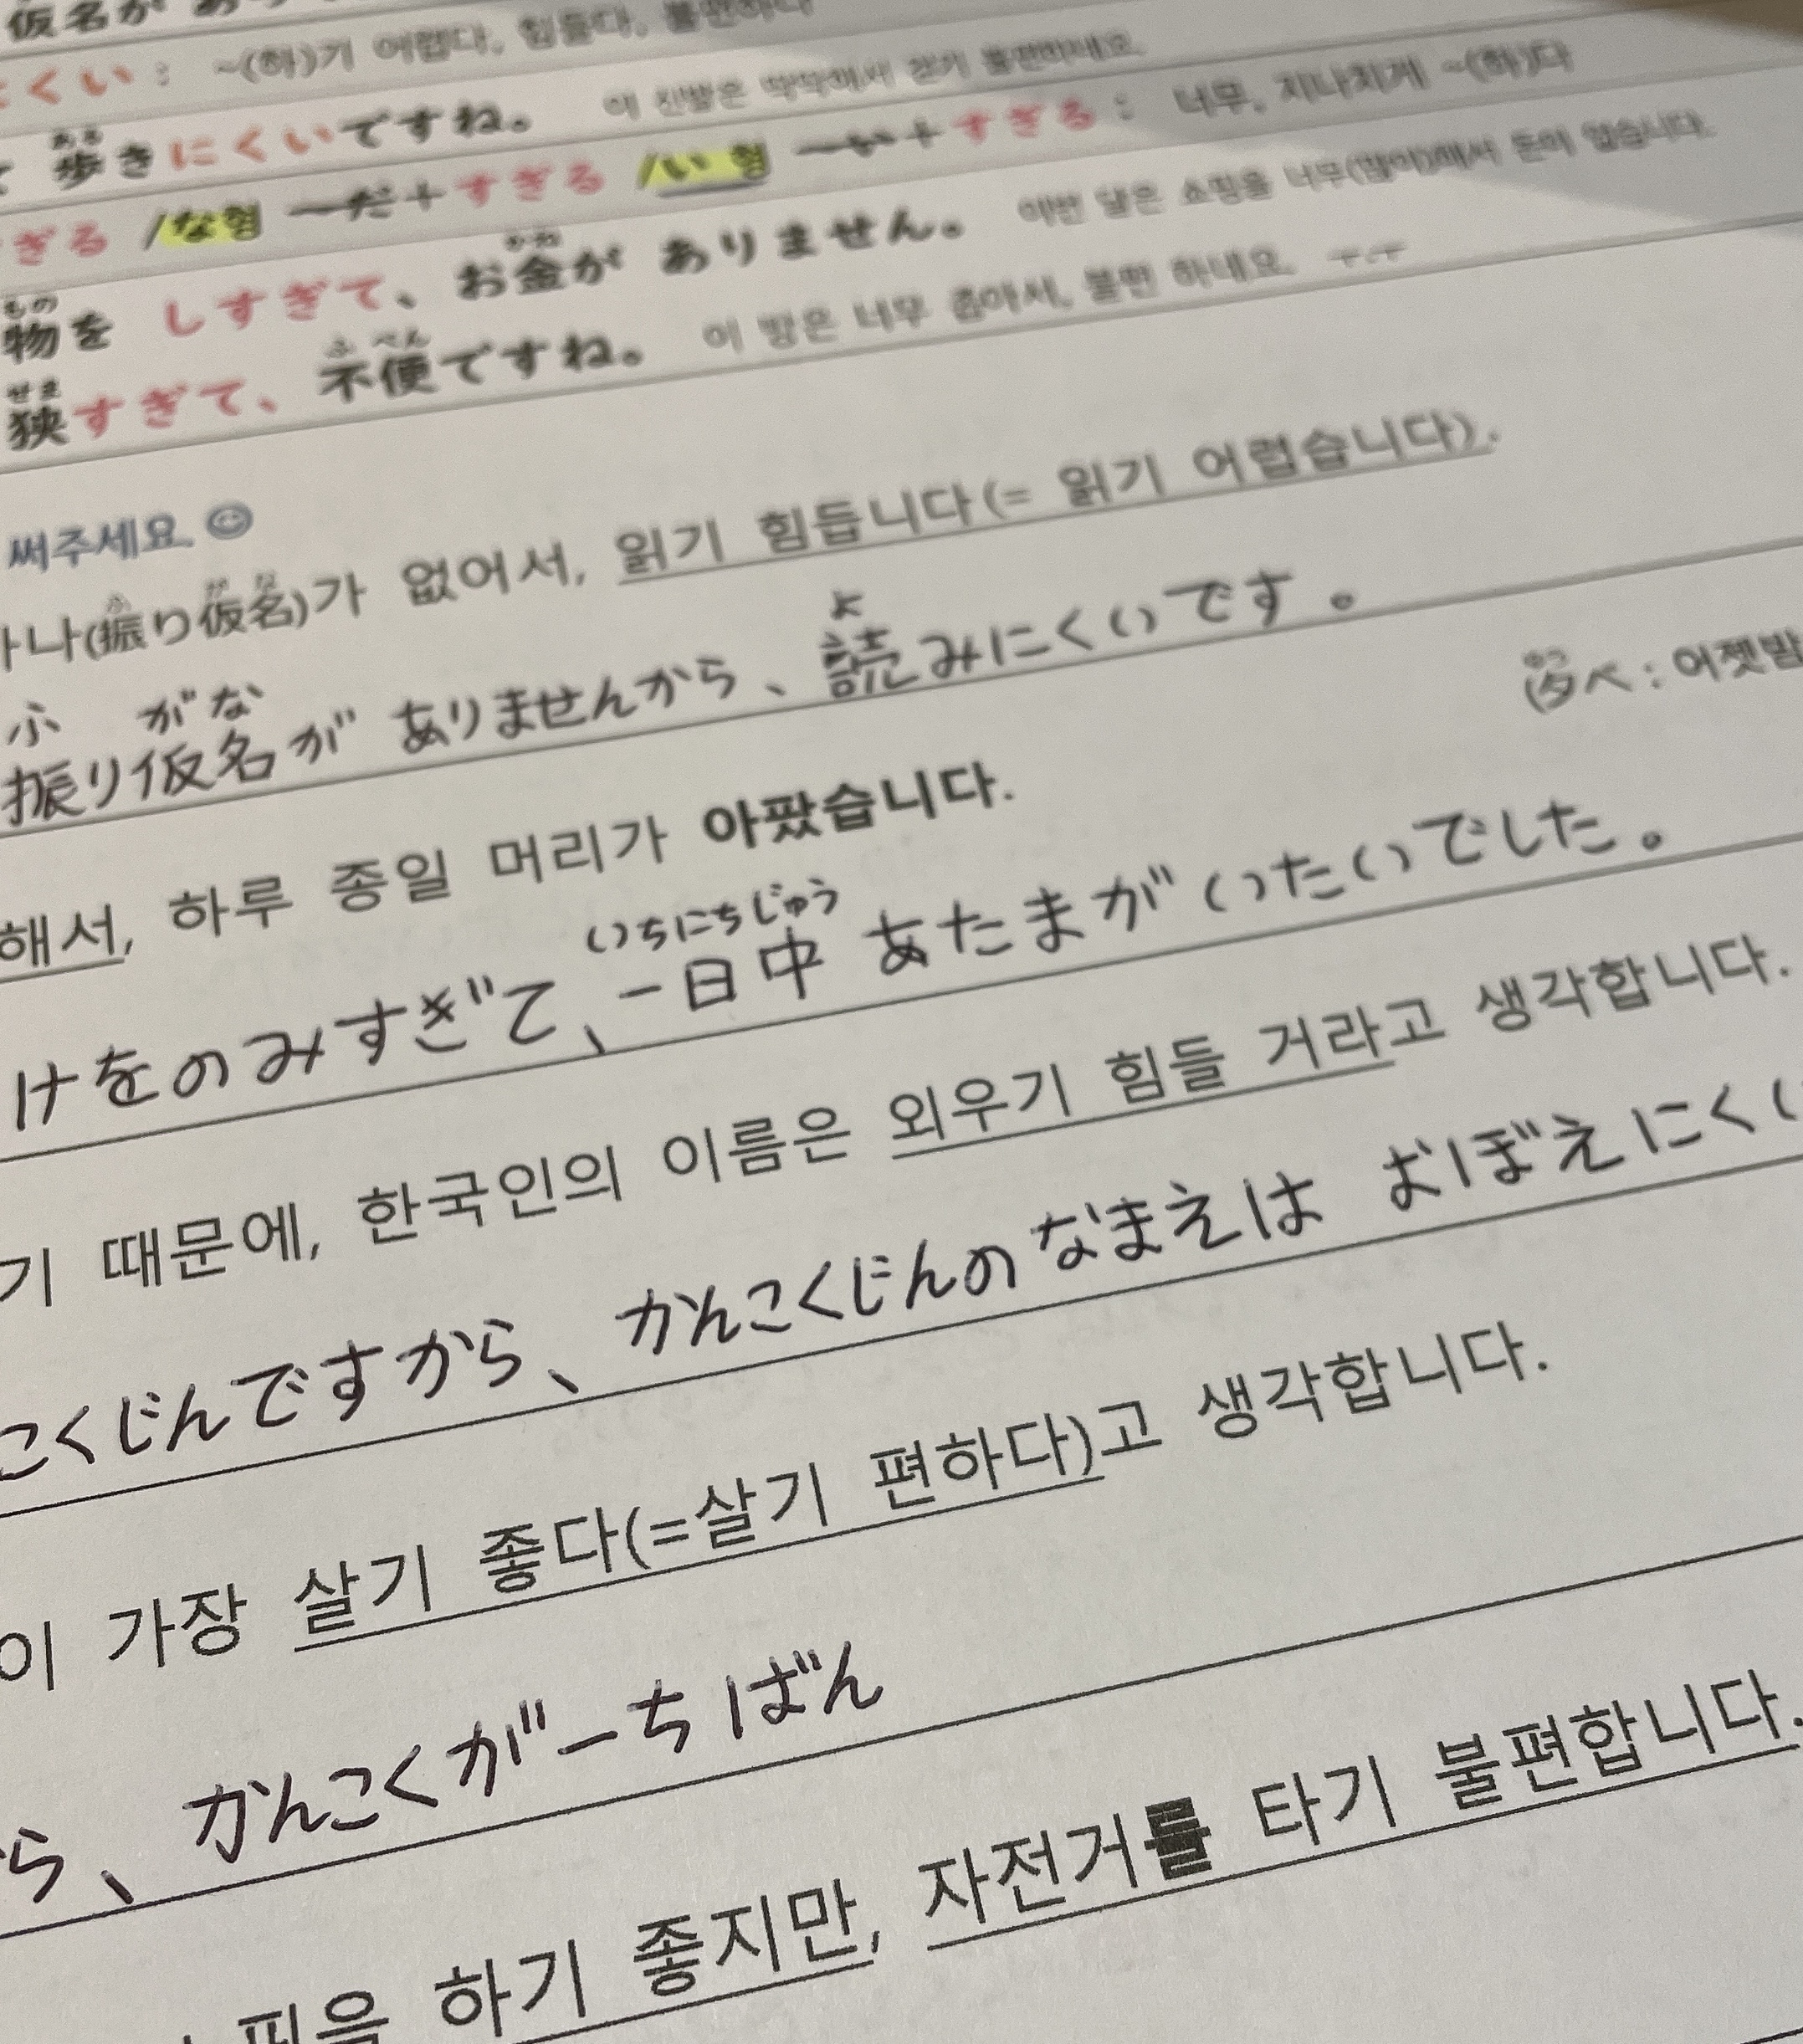 仮名が
にくい : ~(하)기 어렵다, 힘들다, 불편하다
ある
歩きにくいですね。 이 신발은 딱딱해서 걷기 불편하네요.
ぎる /な형 ーだ+すぎる /い형 ーい+すぎる : 너무, 지나치게 ~(하)다
もの かね
物を しすぎて、お金が ありません。 이번 달은 쇼핑을 너무(많이)해서 돈이 없습니다.
せま ふべん
狭すぎて、不便ですね。 이 방은 너무 좁아서, 불편 하네요. ㅜ.ㅜ
써주세요. ☺
나(振り仮名)가 없어서, 읽기 힘듭니다(= 읽기 어렵습니다).
ふ がな よ
振り仮名が ありませんから、読みにくいです。
(夕べ : 어젯밤
해서, 하루 종일 머리가 아팠습니다.
いちにちじゅう
けをのみすぎて、一日中 あたまがいたいでした。
기 때문에, 한국인의 이름은 외우기 힘들 거라고 생각합니다.
こくじんですから、かんこくじんのなまえは おぼえにくい
이 가장 살기 좋다(=살기 편하다)고 생각합니다.
ら、かんこくがーちばん
핑을 하기 좋지만, 자전거를 타기 불편합니다.